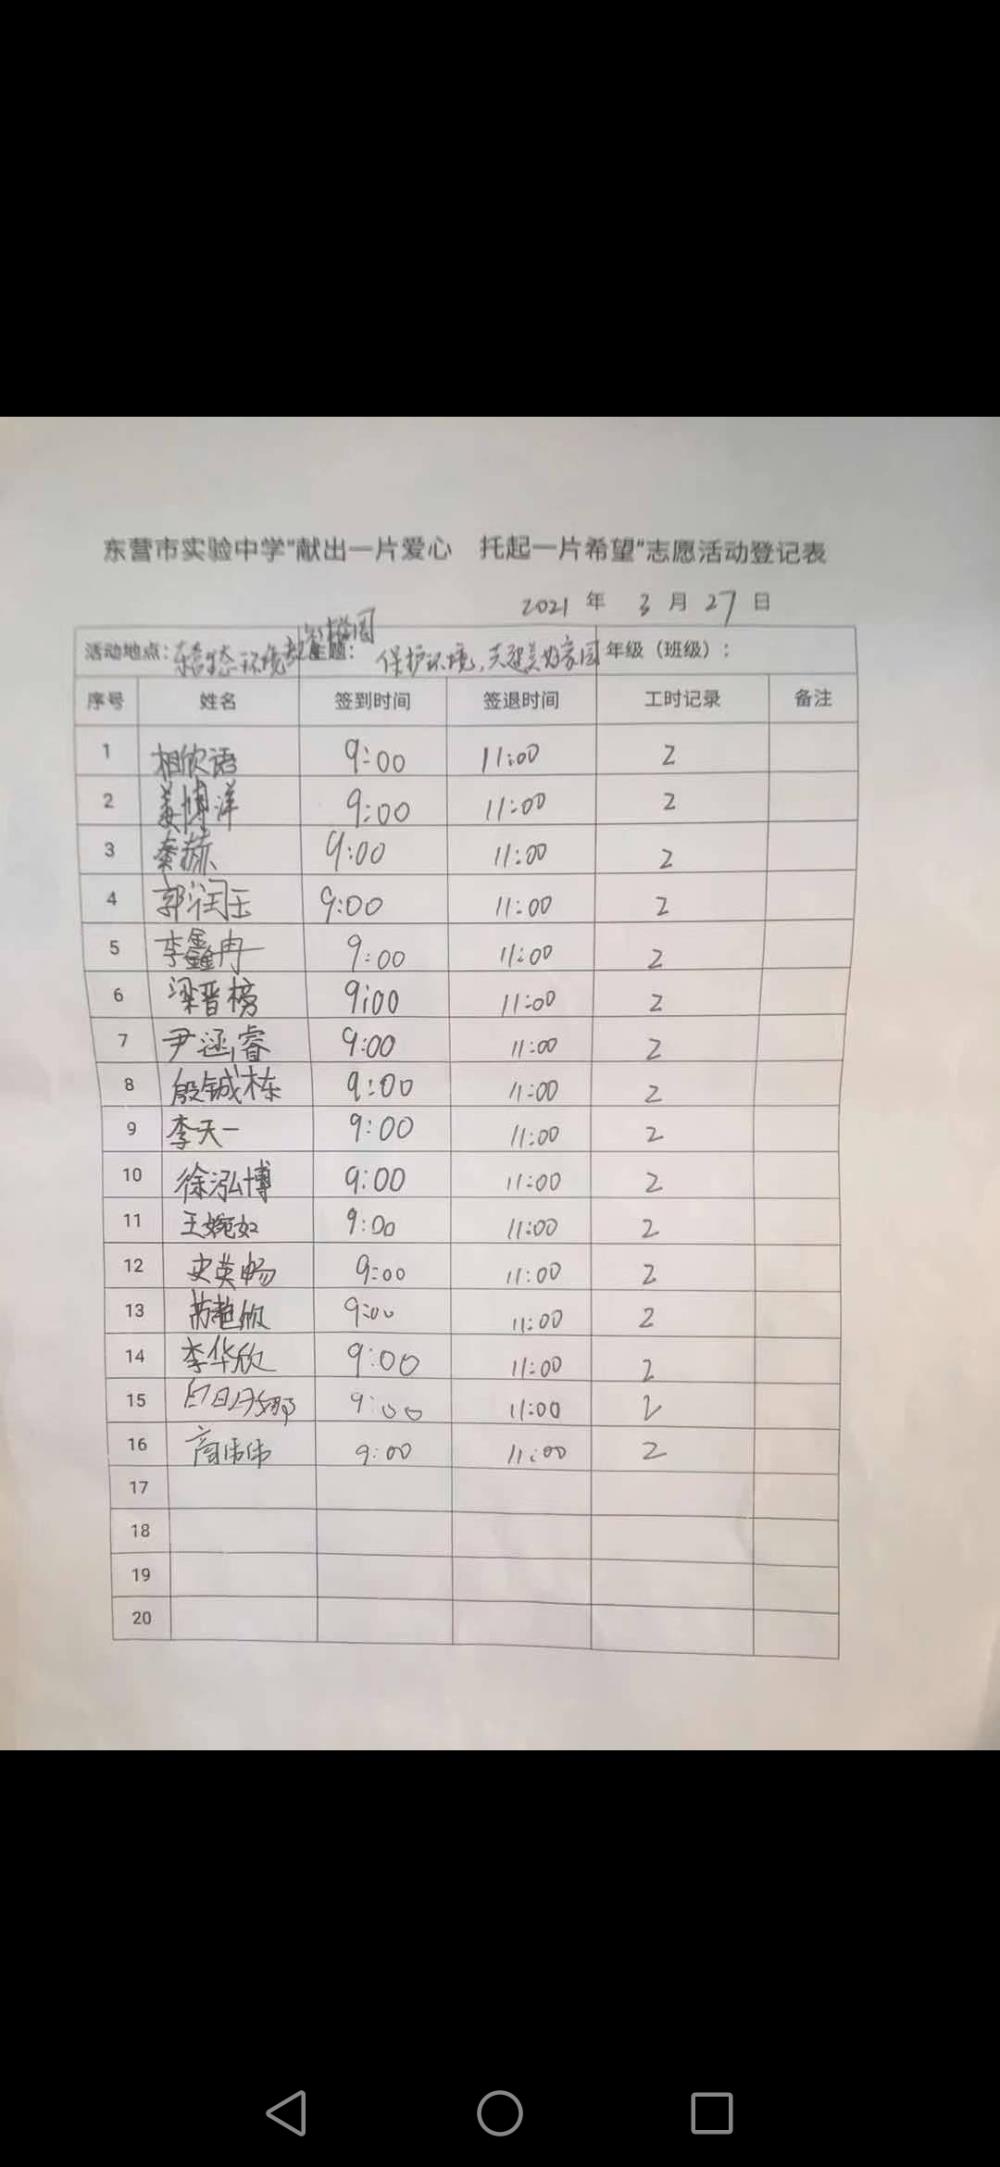 东营市实验中学"献出一片爱心 托起一片希望"志愿活动登记表
2021 年 3 月 27 日
活动地点：东营生态环境 主题： 保护环境，共建美好家园 年级（班级）：
序号 姓名 签到时间 签退时间 工时记录 备注
1 相欣语 9:00 11:00 2
2 姜博洋 9:00 11:00 2
3 秦赫 9:00 11:00 2
4 郭润玉 9:00 11:00 2
5 李鑫冉 9:00 11:00 2
6 梁晋榜 9:00 11:00 2
7 尹涵睿 9:00 11:00 2
8 殷铖栋 9:00 11:00 2
9 李天一 9:00 11:00 2
10 徐泓博 9:00 11:00 2
11 王婉如 9:00 11:00 2
12 史英畅 9:00 11:00 2
13 9:00 11:00 2
14 李华欣 9:00 11:00 2
15 9:00 11:00 2
16 商伟伟 9:00 11:00 2
17
18
19
20